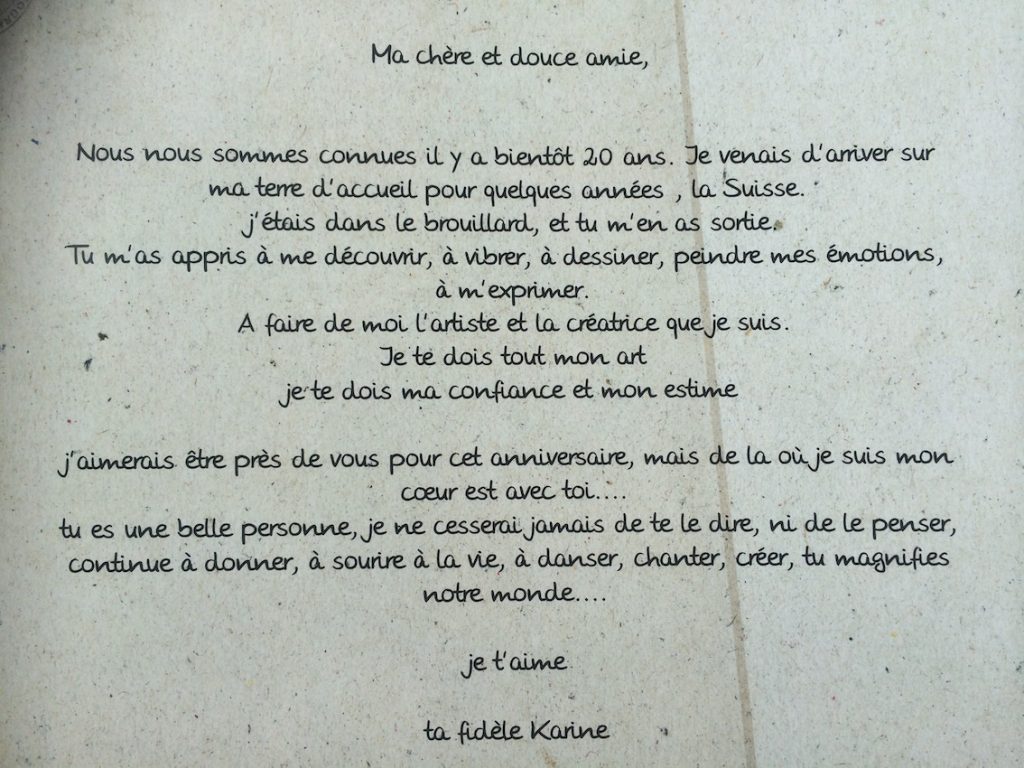 Ma chère et douce amie,
Nous nous sommes connues il y a bientôt 20 ans. Je venais d'arriver sur
ma terre d'accueil pour quelques années , la Suisse.
j'étais dans le brouillard, et tu m'en as sortie.
Tu m'as appris à me découvrir, à vibrer, à dessiner, peindre mes émotions,
à m'exprimer.
A faire de moi l'artiste et la créatrice que je suis.
Je te dois tout mon art
je te dois ma confiance et mon estime
j'aimerais être près de vous pour cet anniversaire, mais de la où je suis mon
cœur est avec toi....
tu es une belle personne, je ne cesserai jamais de te le dire, ni de le penser,
continue à donner, à sourire à la vie, à danser, chanter, créer, tu magnifies
notre monde....
je t'aime
ta fidèle Karine